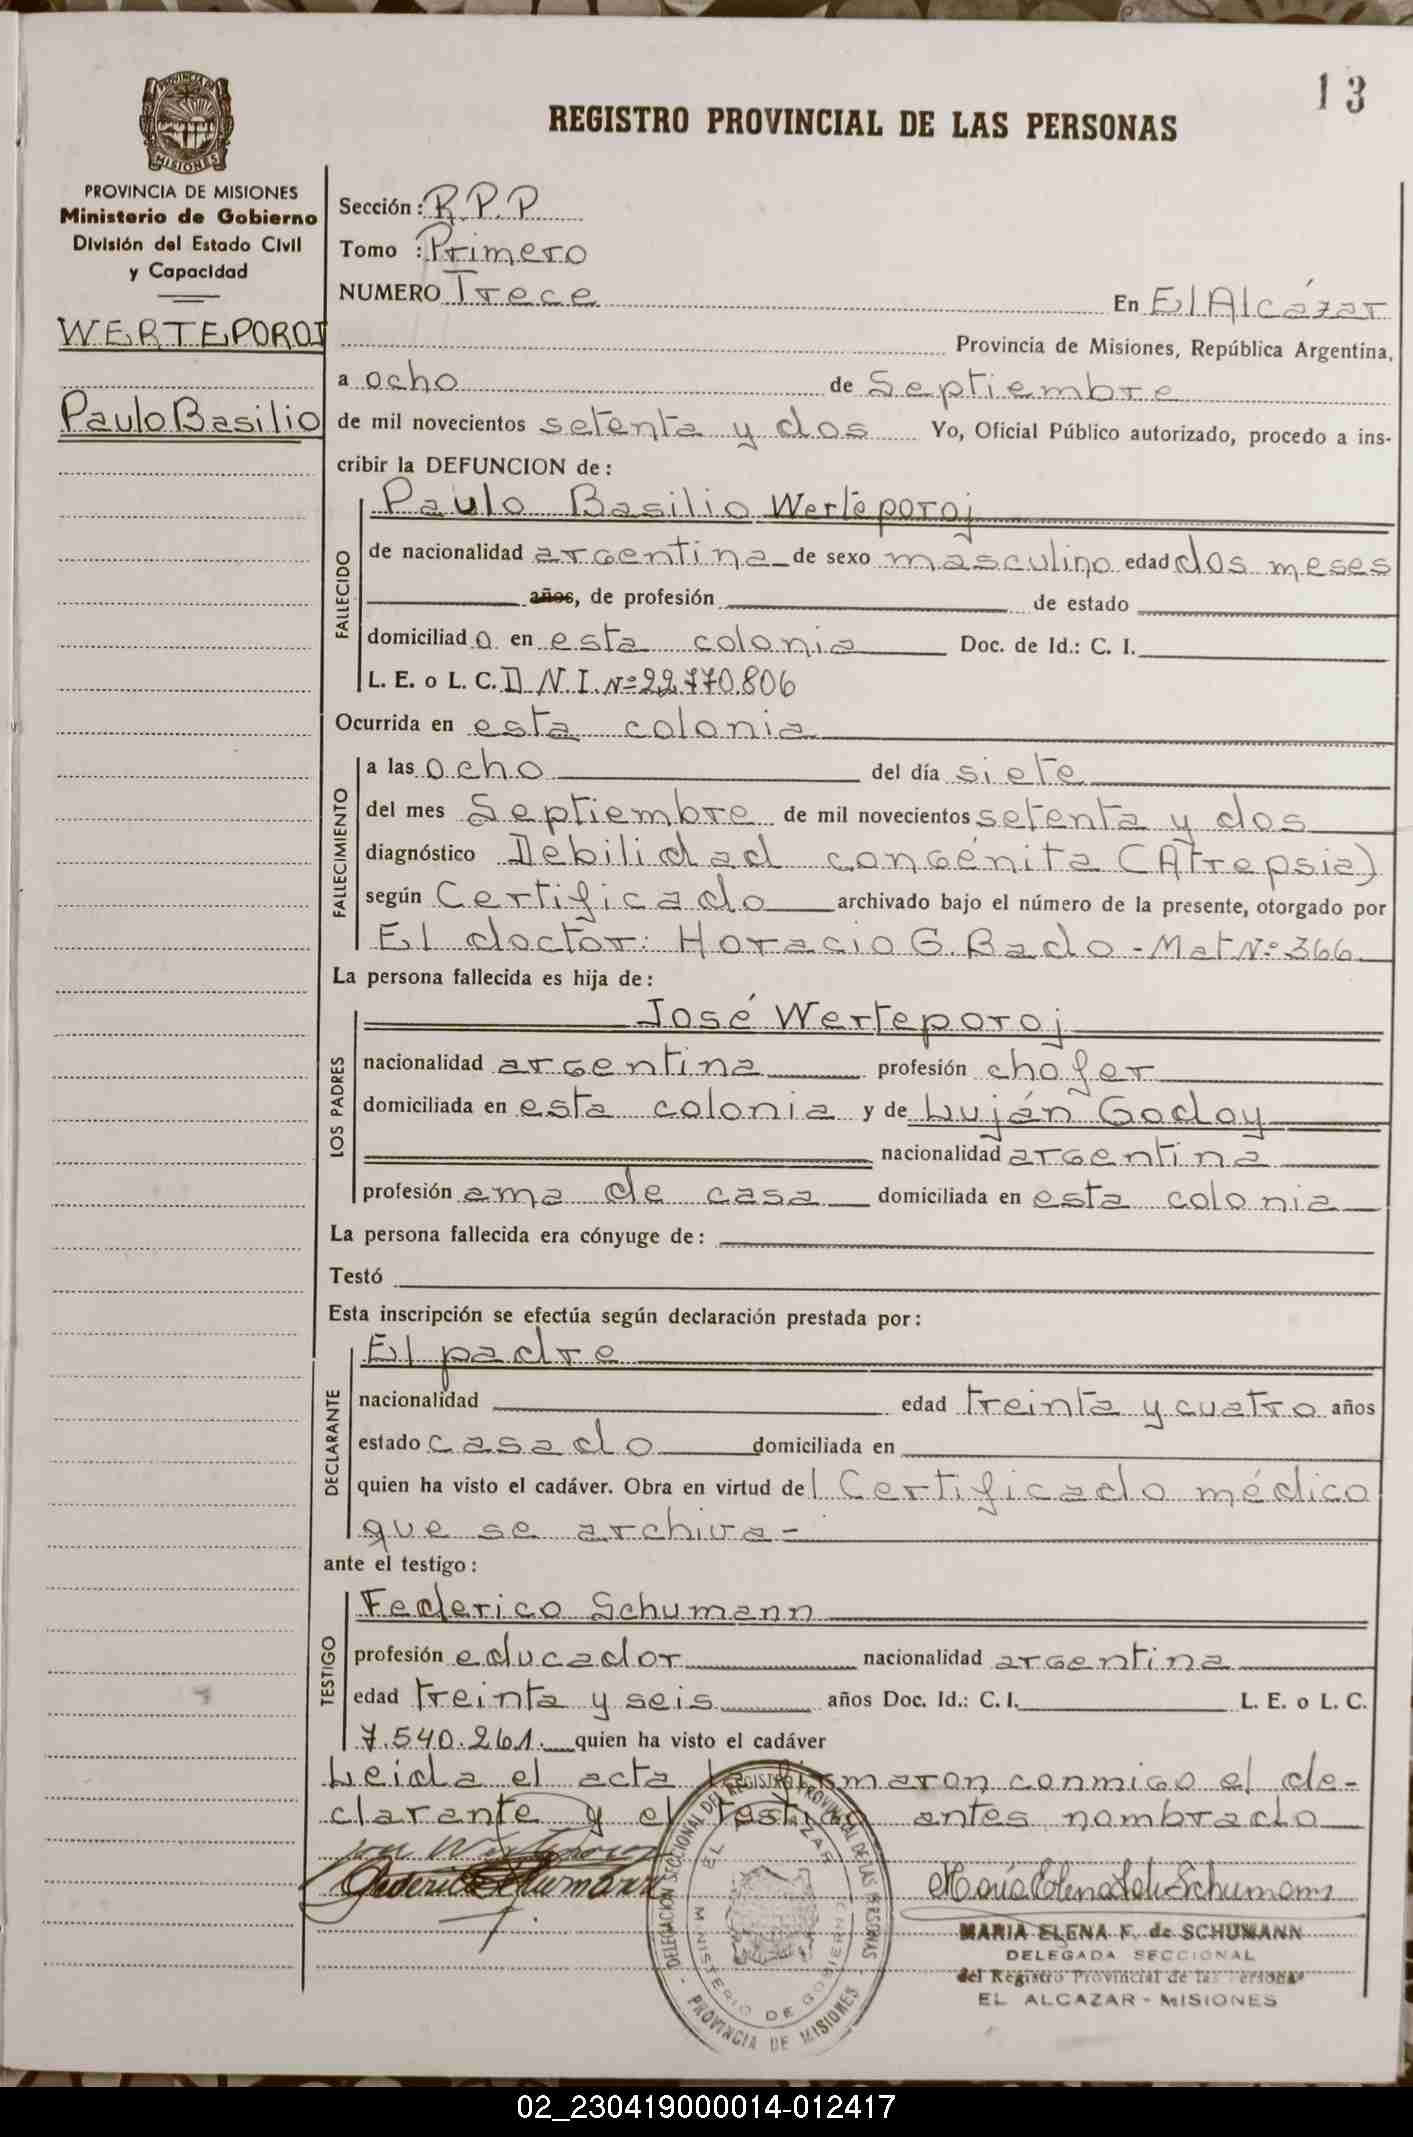 13
REGISTRO PROVINCIAL DE LAS PERSONAS
PROVINCIA DE MISIONES
Ministerio de Gobierno
División del Estado Civil
y Capacidad
WERTEPOROJ
Paulo Basilio
Sección: R.P.P.
Tomo : Primero
NUMERO Trece En El Alcázar
Provincia de Misiones, República Argentina,
a ocho de Septiembre
de mil novecientos setenta y dos Yo, Oficial Público autorizado, procedo a ins-
cribir la DEFUNCION de :
Paulo Basilio Werteporoj
FALLECIDO
de nacionalidad argentina de sexo masculino edad dos meses
años, de profesión de estado
domiciliado en esta colonia Doc. de Id.: C. I.
L. E. o L. C. D.N.I. Nº 22.770.806
Ocurrida en esta colonia
FALLECIMIENTO
a las ocho del día siete
del mes Septiembre de mil novecientos setenta y dos
diagnóstico Debilidad congénita (Atrepsia)
según Certificado archivado bajo el número de la presente, otorgado por
El doctor: Horacio G. Bado - Mat Nº 366
La persona fallecida es hija de :
LOS PADRES
José Werteporoj
nacionalidad argentina profesión chofer
domiciliada en esta colonia y de Luján Godoy
nacionalidad argentina
profesión ama de casa domiciliada en esta colonia
La persona fallecida era cónyuge de :
Testó
Esta inscripción se efectúa según declaración prestada por :
DECLARANTE
El padre
nacionalidad edad treinta y cuatro años
estado casado domiciliada en
quien ha visto el cadáver. Obra en virtud del Certificado médico
que se archiva -
ante el testigo :
TESTIGO
Federico Schumann
profesión educador nacionalidad argentina
edad treinta y seis años Doc. Id.: C. I. L. E. o L. C.
7.540.261. quien ha visto el cadáver
Leida el acta la firmaron conmigo el de-
clarante y el testigo antes nombrado
Federico Schumann
María Elena F. de Schumann
MARIA ELENA F. de SCHUMANN
DELEGADA SECCIONAL
del Registro Provincial de las Personas
EL ALCAZAR - MISIONES
DELEGACION SECCIONAL DEL REGISTRO PROVINCIAL DE LAS PERSONAS
EL ALCAZAR
MINISTERIO DE GOBIERNO
- PROVINCIA DE MISIONES -
02_230419000014-012417